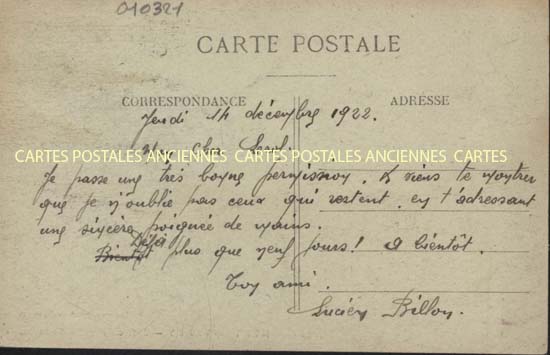 010321
CARTE POSTALE
CORRESPONDANCE
ADRESSE
Jeudi 14 décembre 1922.
Mon cher
CARTES POSTALES ANCIENNES CARTES POSTALES ANCIENNES CARTES
Je passe une très bonne permission. Je viens te montrer
que je n'oublie pas ceux qui restent, en t'adressant
une sincère poignée de mains.
Déjà
Bientôt plus que neuf jours! A bientôt.
Ton ami.
Lucien Billon.